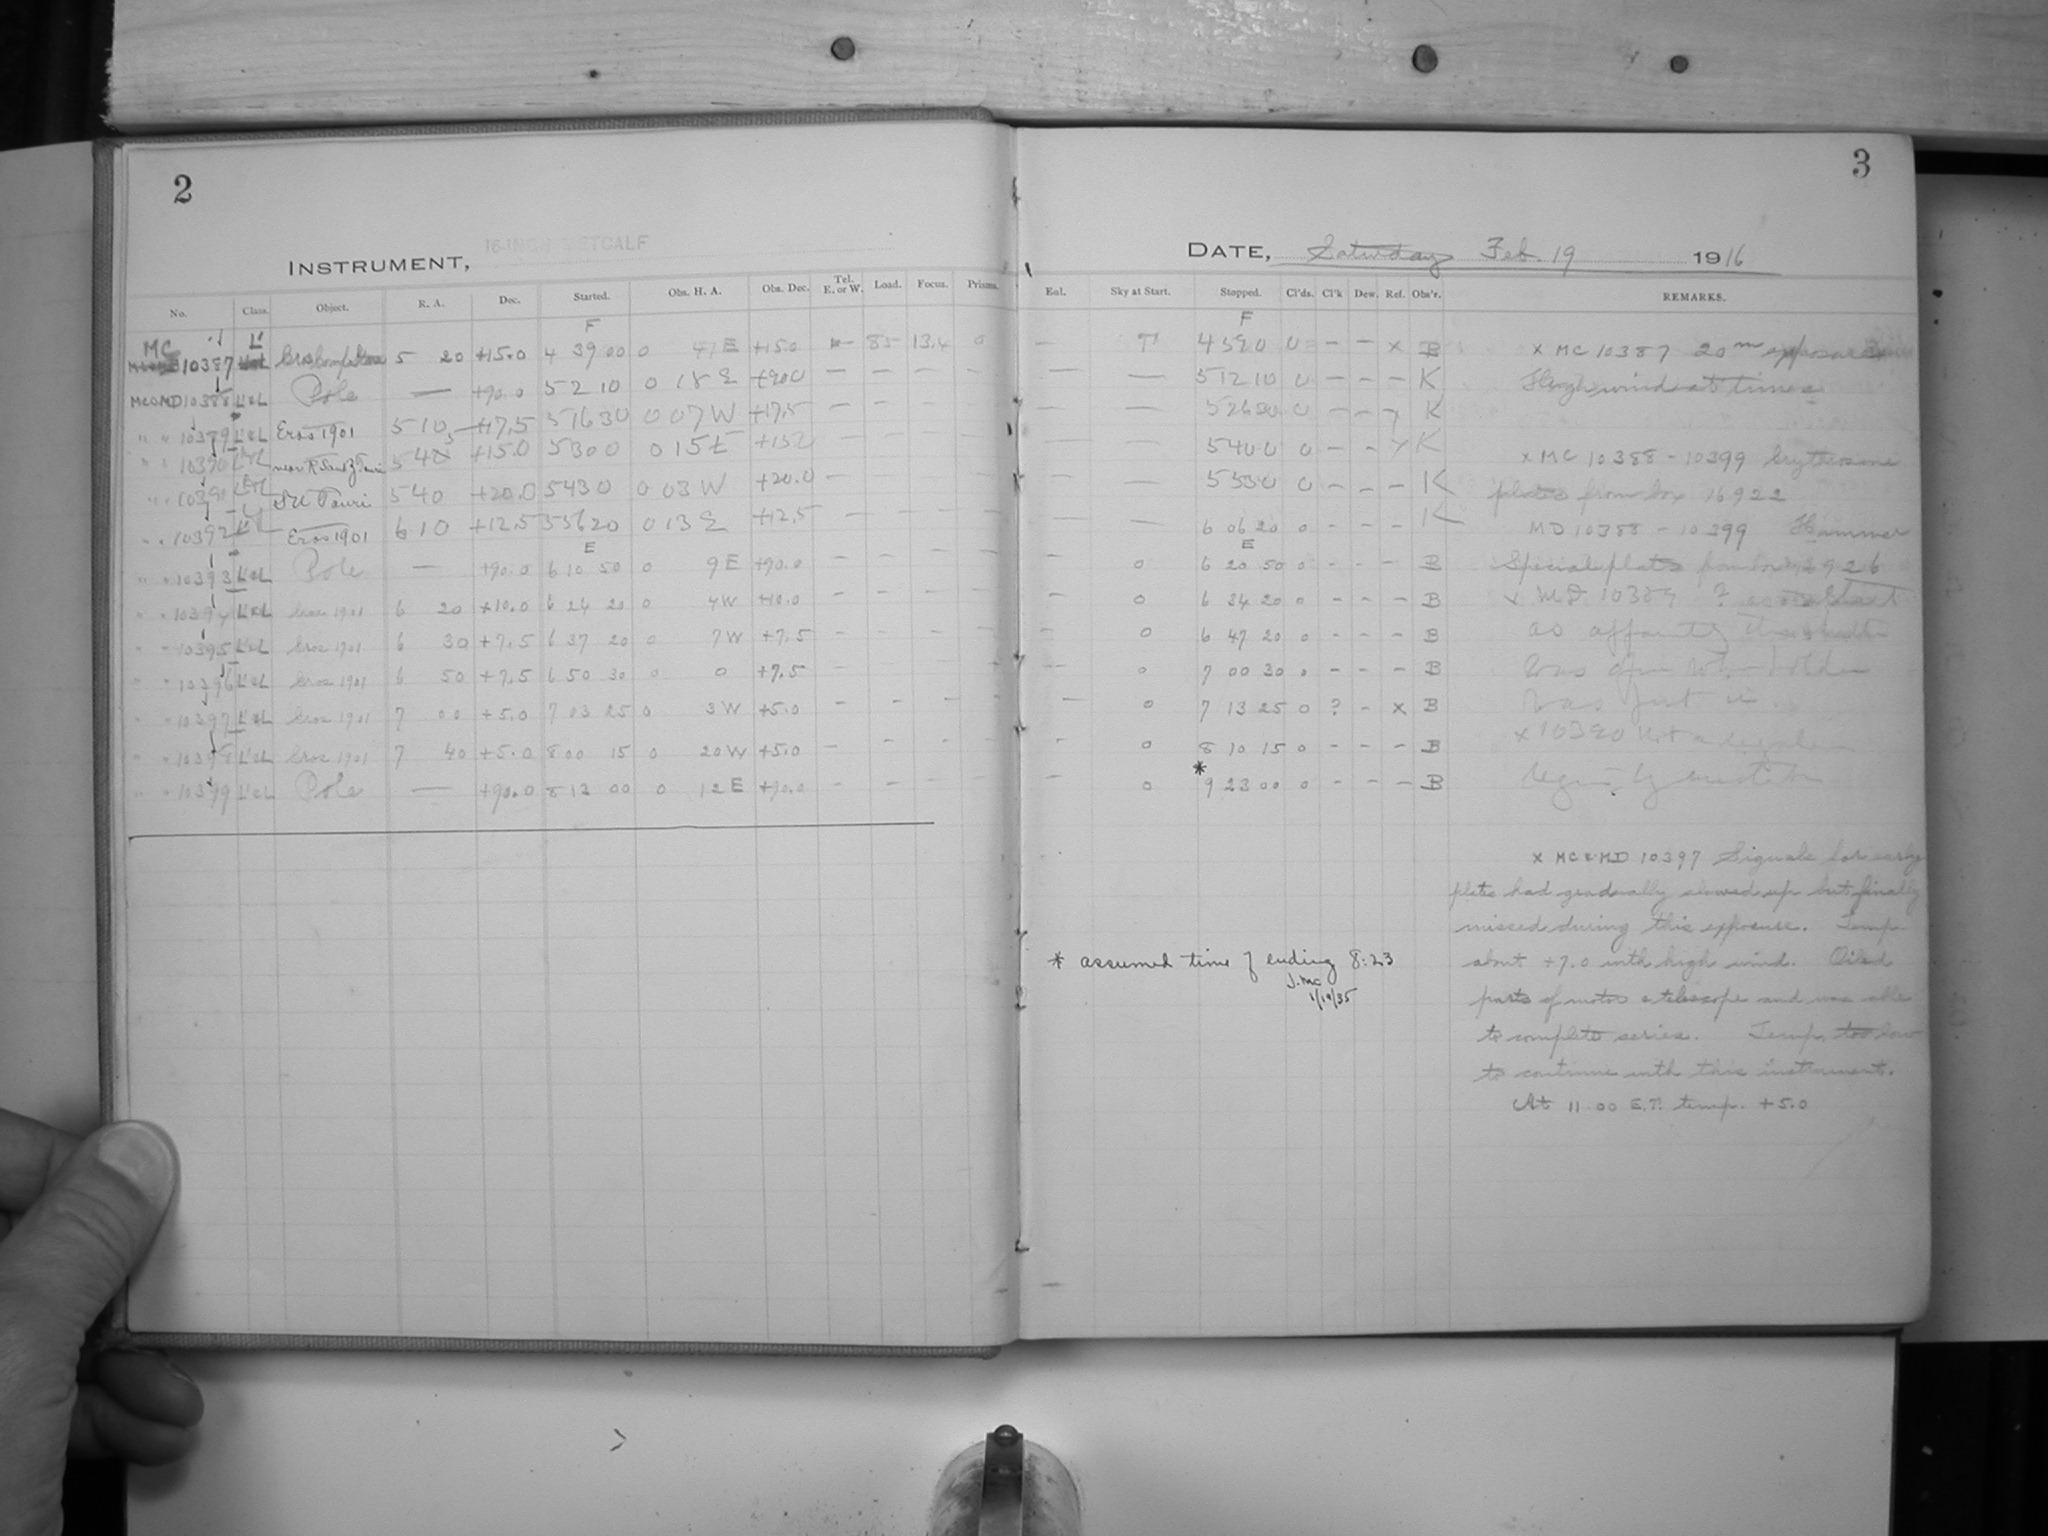 2
3
INSTRUMENT, 16-INCH METCALF
DATE, Saturday Feb. 19 1916
No. Class. Object. R. A. Dec. Started. Obs. H. A. Obs. Dec. Tel. E. or W. Load. Focus. Prisms. Eul. Sky at Start. Stopped. Cl'ds. Cl'k Dew. Ref. Obs'r. REMARKS.
F F
MC 10387 L' 5 20 +15.0 4 39 00 0 41 E +15.0 85 13.4 0 — T 4 59 0 0 — — x B
MC&MD 10388 L'&L Pole — +90.0 5 2 10 0 18 E +90.0 — — — — — — 5 12 10 0 — — — K
" " 10389 L'&L Eros 1901 5 10 +17.5 5 16 30 0 07 W +17.5 — — — — — — 5 26 30 0 — — x K
" " 10390 L'&L near +15.0 5 30 0 0 15 E +15.0 — — — — 5 40 0 0 — — x K
" " 10391 L'&L SU Tauri 5 40 +20.0 5 43 0 0 03 W +20.0 — — — — — — 5 53 0 0 — — — K
" " 10392 L'&L Eros 1901 6 10 +12.5 5 56 20 0 13 E +12.5 — — — — — — 6 06 20 0 — — — K
E E
" " 10393 L'&L Pole — +90.0 6 10 50 0 9 E +90.0 — — — — — 0 6 20 50 0 — — — B
" " 10394 L'&L Eros 1901 6 20 +10.0 6 24 20 0 4 W +10.0 — — — — — 0 6 34 20 0 — — — B
" " 10395 L'&L Eros 1901 6 30 +7.5 6 37 20 0 7 W +7.5 — — — — — 0 6 47 20 0 — — — B
" " 10396 L'&L Eros 1901 6 50 +7.5 6 50 30 0 0 +7.5 — — — — — 0 7 00 30 0 — — — B
" " 10397 L'&L Eros 1901 7 00 +5.0 7 03 25 0 3 W +5.0 — — — — — 0 7 13 25 0 ? — x B
" " 10398 L'&L Eros 1901 7 40 +5.0 8 00 15 0 20 W +5.0 — — — — — 0 8 10 15 0 — — — B
" " 10399 L'&L Pole — +90.0 8 13 00 0 12 E +90.0 — — — — — 0 * 9 23 00 0 — — — B
x MC 10387 20m exposure
High wind at times
x MC 10388 - 10399 Erythrosine
plates from box 16922
MD 10388 - 10399 Hammer
Special plates from box
x MD 10389 ?
was just in
x 10390 not
x MC & MD 10397 Signals for early
plates had gradually slowed up but finally
missed during this exposure. Temp.
about +7.0 with high wind. Oiled
parts of motor & telescope and was able
to complete series. Temp. too low
to continue with this instrument.
At 11 00 E.T. temp. +5.0
* assumed time of ending 8:23
J. Mc
1/19/35